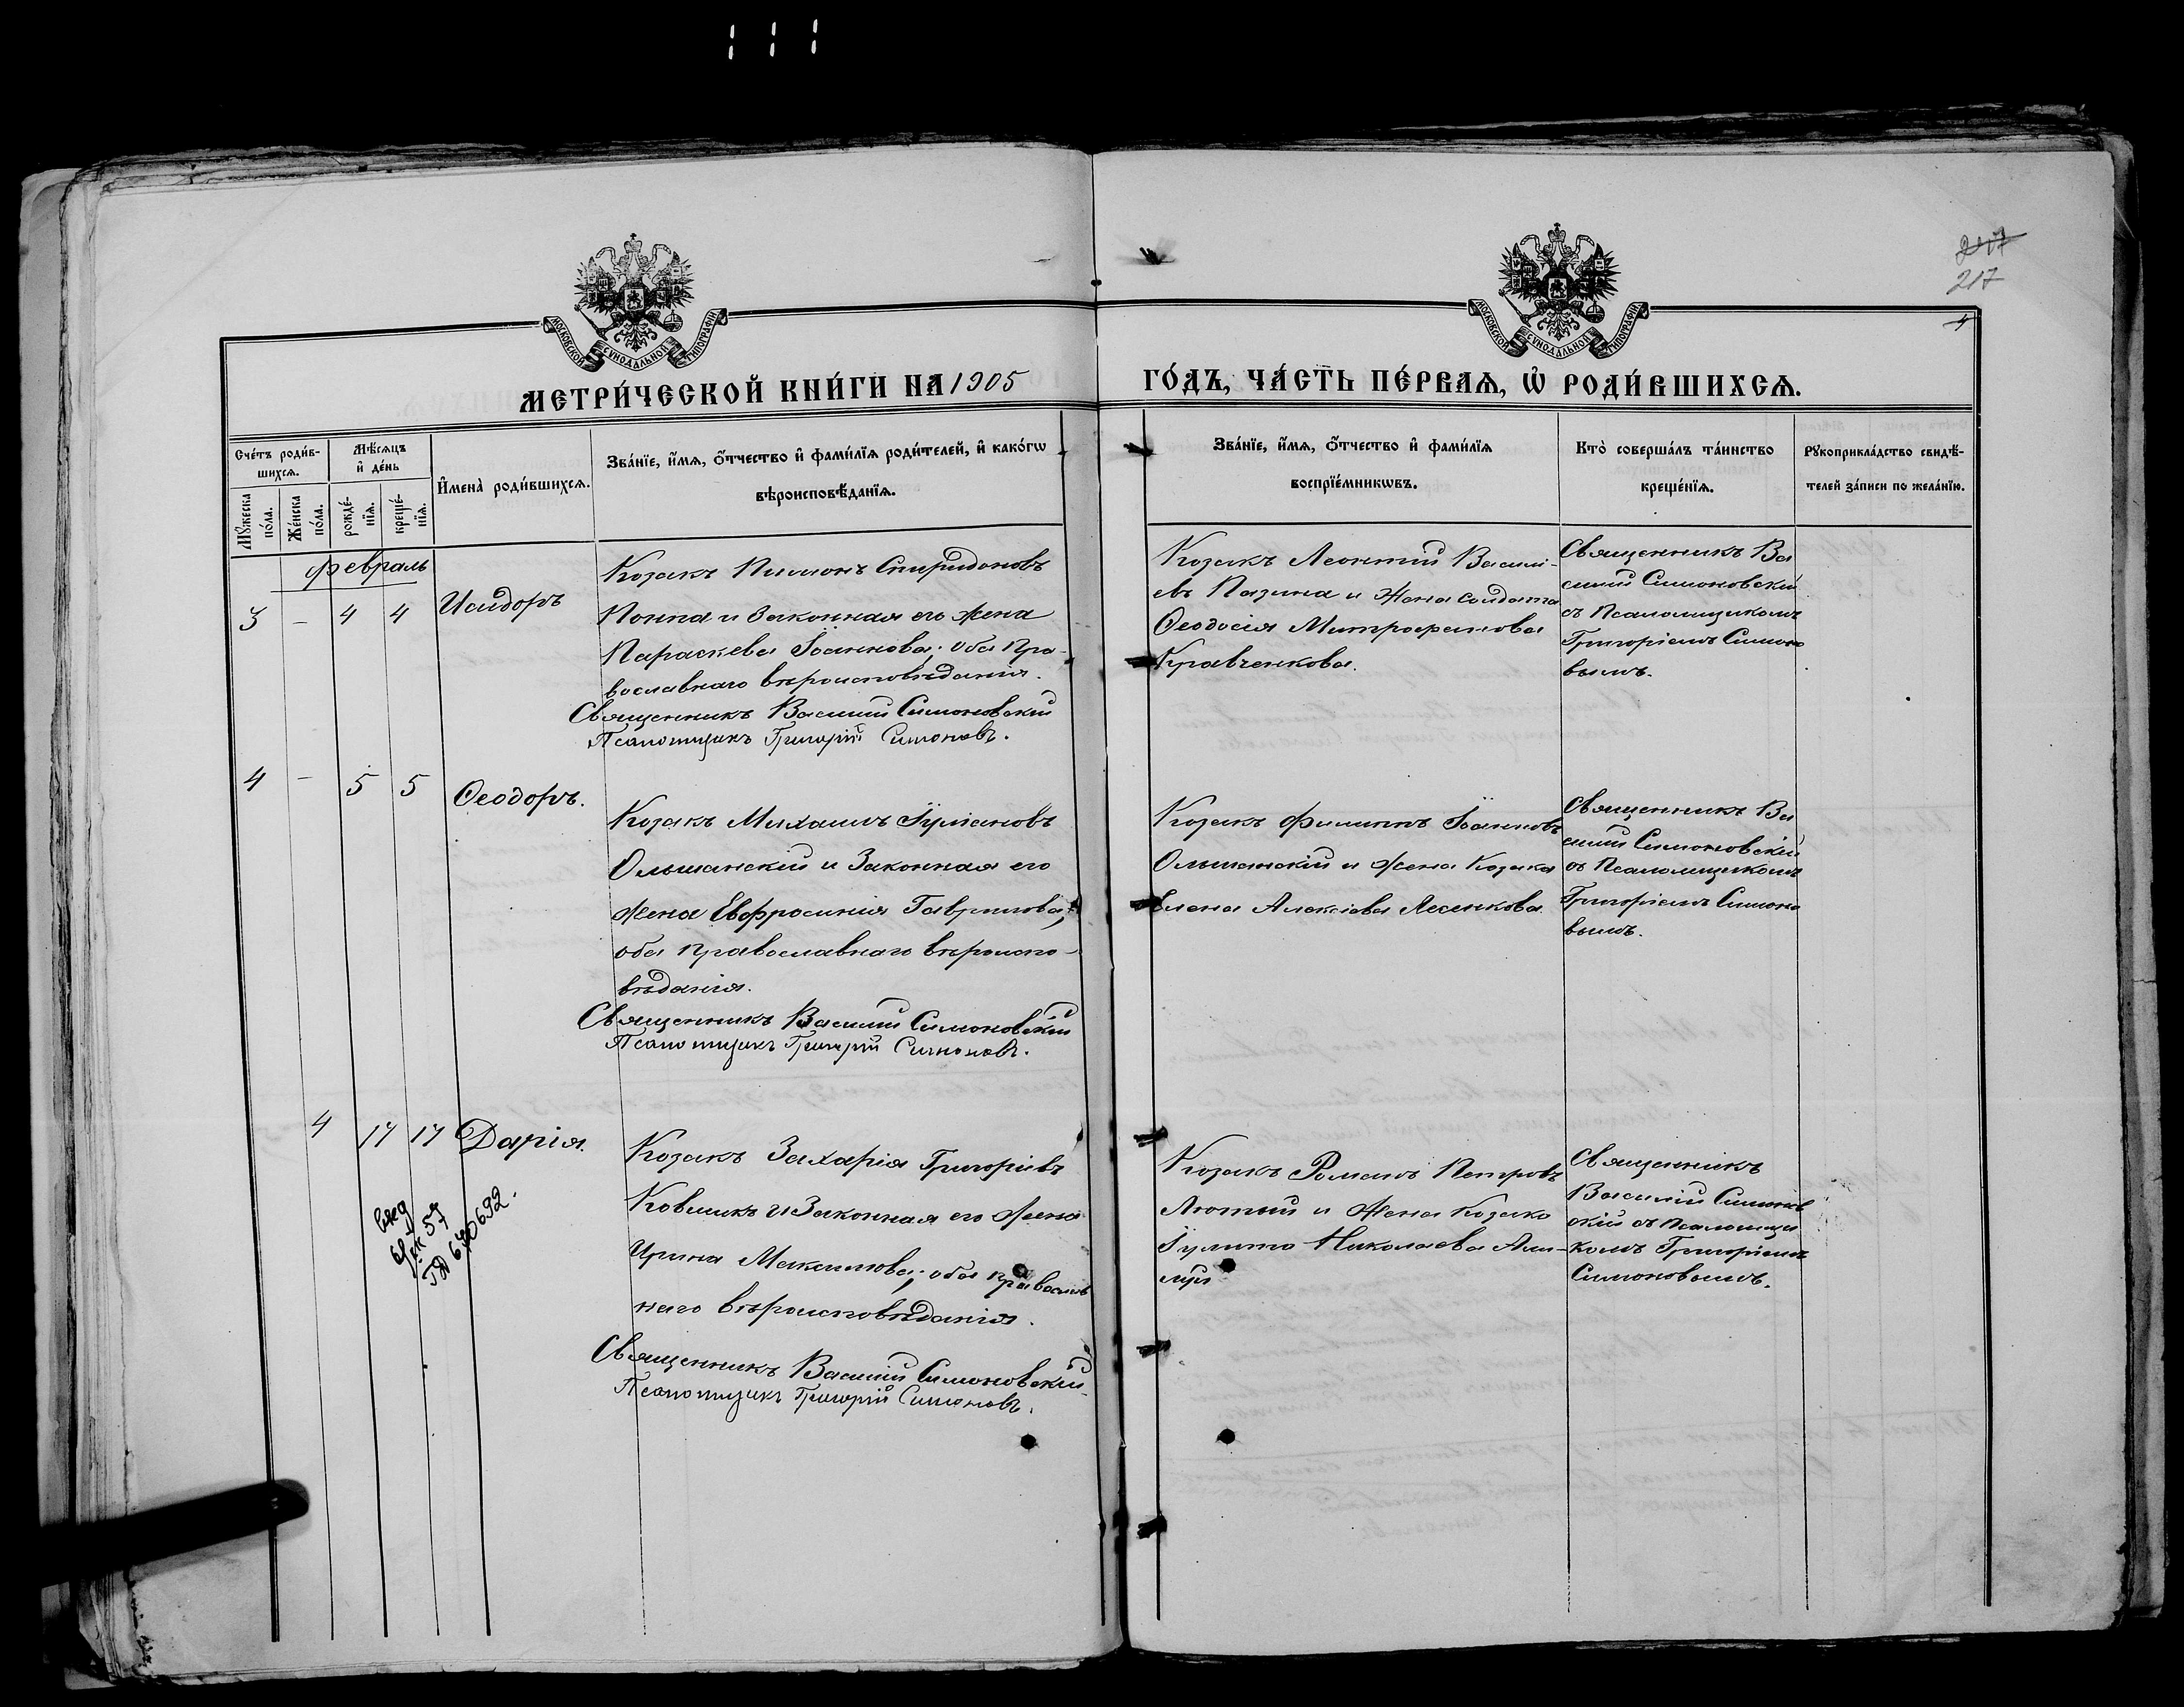 217
217
4
МОСКОВСКОЙ СѴНОДАЛЬНОЙ ТИПОГРАФІИ
МОСКОВСКОЙ СѴНОДАЛЬНОЙ ТИПОГРАФІИ
МЕТРИ́ЧЕСКОЙ КНИ́ГИ НА 1905 ГО́ДЪ, ЧА́СТЬ ПЕ́РВАѦ, Ѡ҆ РОДИ́ВШИХСѦ.
Сче́тъ роди́в-
шихсѧ.
Мѣ́сѧцъ
и҆ де́нь
Мꙋ́жеска
по́ла.
Же́нска
по́ла.
рожде́-
нїѧ.
креще́-
нїѧ.
И҆мена̀ роди́вшихсѧ.
Зва́нїе, и҆́мѧ, ѻ҆́тчество и҆ фами́лїѧ роди́телей, и҆ како́гѡ
вѣроисповѣ́данїѧ.
Зва́нїе, и҆́мѧ, ѻ҆́тчество и҆ фами́лїѧ
воспрїе́мникѡвъ.
Кто̀ соверша́лъ та́инство
креще́нїѧ.
Рꙋкоприкла́дство свидѣ́-
телей за́писи по жела́нїю.
февраль
3 – 4 4 Исидоръ
Козакъ Пимонъ Спиридоновъ
Поппа и Законная его жена
Параскева Іоаннова; оба Пра-
вославнаго вѣроисповѣданія.
Священникъ Василій Симоновскій
Псаломщикъ Григорій Симоновъ.
Козакъ Леонтій Василі-
евъ Пазина и Жена солдата
Ѳеодосія Митрофанова
Кравченкова.
Священникъ Ва
силій Симоновскій
съ Псаломщикомъ
Григоріемъ Симоно
вымъ.
4 – 5 5 Ѳеодоръ.
Козакъ Михаилъ Іуліановъ
Ольшанскій и Законная его
жена Евфросинія Гаврилова;
оба православнаго вѣроиспо-
вѣданія.
Священникъ Василій Симоновскій
Псаломщикъ Григорій Симоновъ.
Козакъ Филиппъ Іоанновъ
Ольшанскій и жена Козака
Елена Алексіева Лесенкова.
Священникъ Ва
силій Симоновскій
съ Псаломщикомъ
Григоріемъ Симоно
вымъ.
4 17 17 Дарія.
57
Козакъ Захарія Григоріевъ
Ковшикъ и Законная его жена
Ирина Максимова; оба православ
наго вѣроисповѣданія.
Священникъ Василій Симоновскій
Псаломщикъ Григорій Симоновъ.
Козакъ Романъ Петровъ
Лютый и Жена Козака
Іулита Николаева
Священникъ
Василій Симонов
скій съ Псаломщи
комъ Григоріемъ
Симоновымъ.